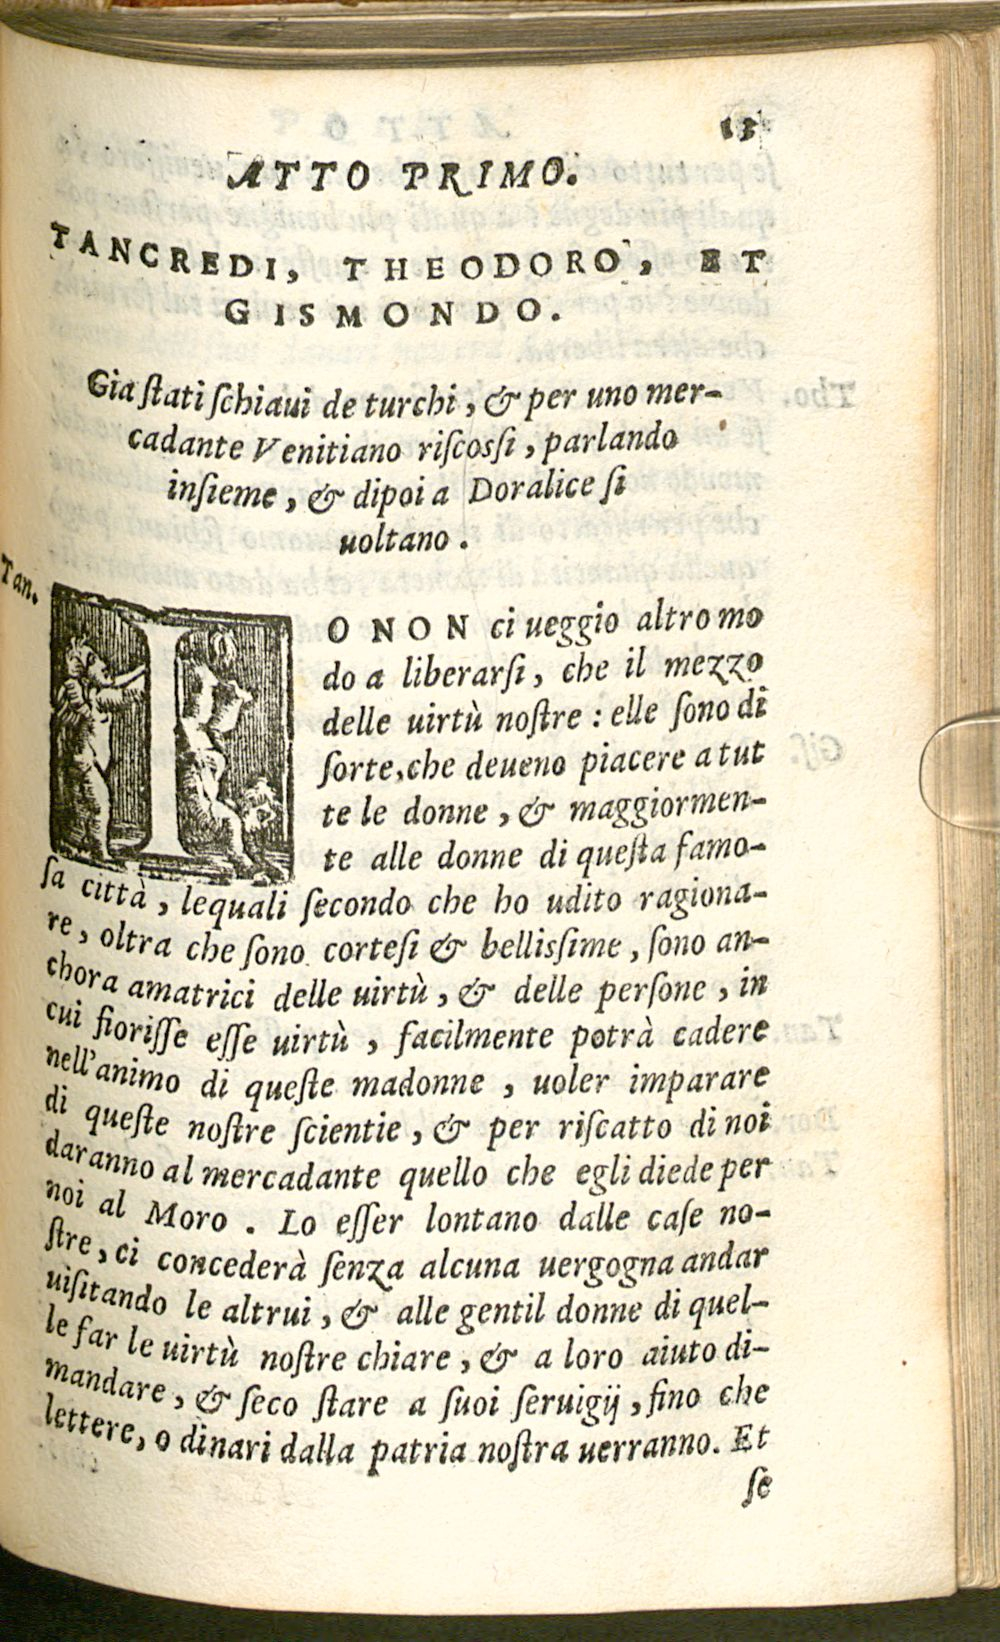 13
ATTO PRIMO.
TANCREDI, THEODORO, ET
GISMONDO.
Gia ſtati ſchiaui de turchi, & per uno mer-
cadante Venitiano riſcoſſi, parlando
inſieme, & dipoi a Doralice ſi
uoltano.
Tan.
IO NON ci ueggio altro mo
do a liberarſi, che il mezzo
delle uirtù noſtre: elle ſono di
ſorte, che deueno piacere a tut
te le donne, & maggiormen-
te alle donne di queſta famo-
ſa città, lequali ſecondo che ho udito ragiona-
re, oltra che ſono corteſi & belliſsime, ſono an-
chora amatrici delle uirtù, & delle perſone, in
cui fioriſſe eſſe uirtù, facilmente potrà cadere
nell'animo di queſte madonne, uoler imparare
di queſte noſtre ſcientie, & per riſcatto di noi
daranno al mercadante quello che egli diede per
noi al Moro. Lo eſſer lontano dalle caſe no-
ſtre, ci concederà ſenza alcuna uergogna andar
uiſitando le altrui, & alle gentil donne di quel-
le far le uirtù noſtre chiare, & a loro aiuto di-
mandare, & ſeco ſtare a ſuoi ſeruigij, fino che
lettere, o dinari dalla patria noſtra uerranno. Et
ſe